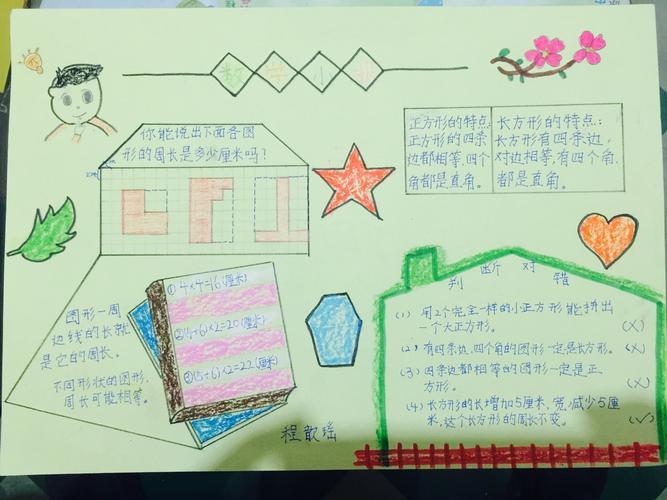 数学小报
你能说出下面各图
形的周长是多少厘米吗?
正方形的特点:
正方形的四条
边都相等,四个
角都是直角。
长方形的特点:
长方形有四条边,
对边相等,有四个角,
都是直角。
①4×4=16(厘米)
②(4+6)×2=20(厘米)
③(5+6)×2=22(厘米)
图形一周
边线的长就
是它的周长。
不同形状的图形,
周长可能相等。
判断对错
(1) 用2个完全一样的小正方形能拼出
一个大正方形。 (×)
(2) 有四条边,四个角的图形一定是长方形。 (×)
(3) 四条边都相等的图形一定是正
方形。 (×)
(4) 长方形的长增加5厘米,宽减少5厘
米,这个长方形的周长不变。 (√)
程歆瑶